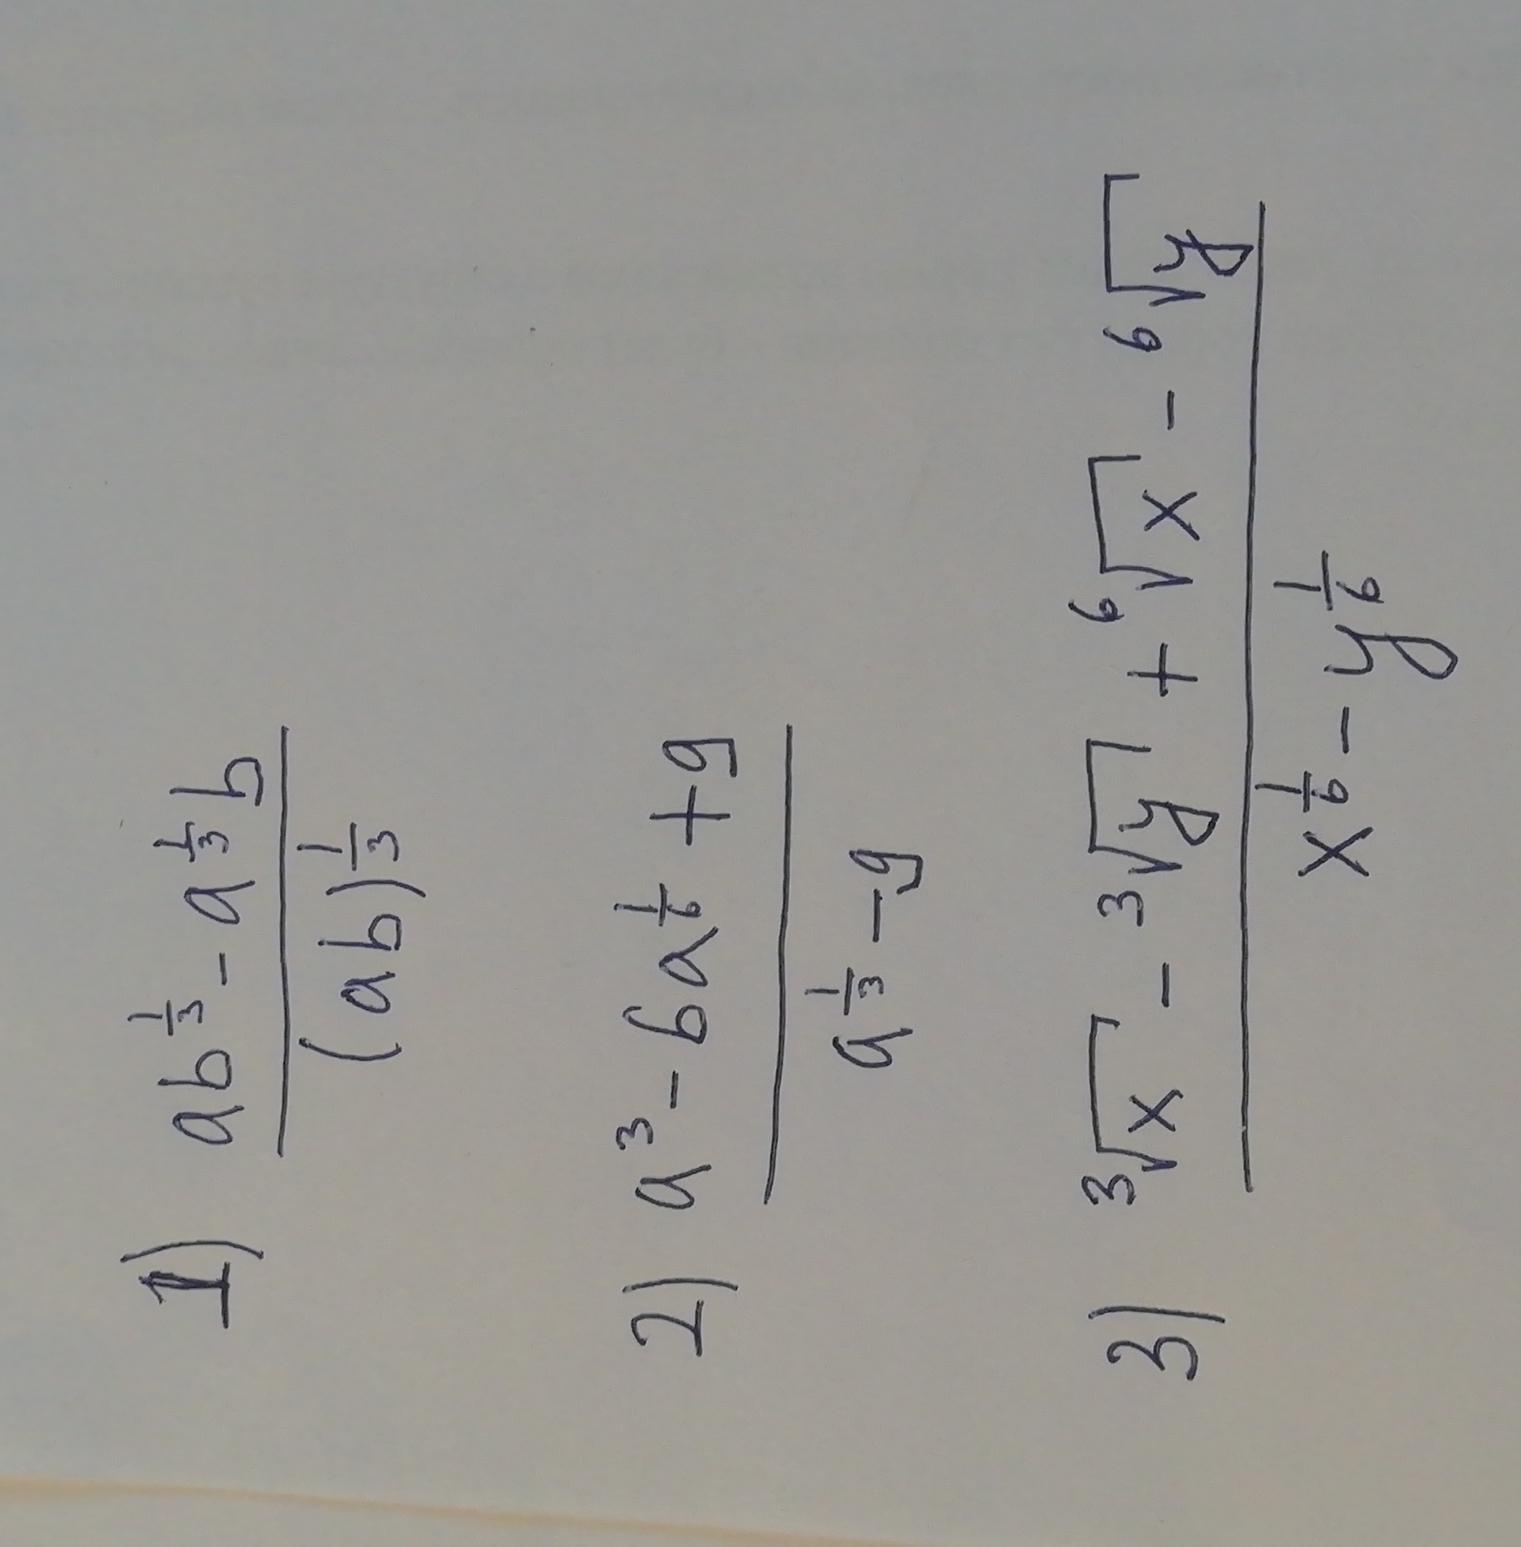 1) (ab^{1/3} - a^{1/3}b) / (ab)^{1/3}
2) (a^3 - 6a^{1/6} + 9) / (a^{1/3} - 9)
3) (∛x - ∛y + ⁶√x - ⁶√y) / (x^{1/6} - y^{1/6})